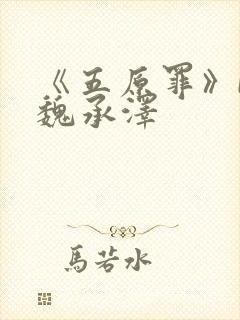 《五原罪》
魏承澤
馬若水